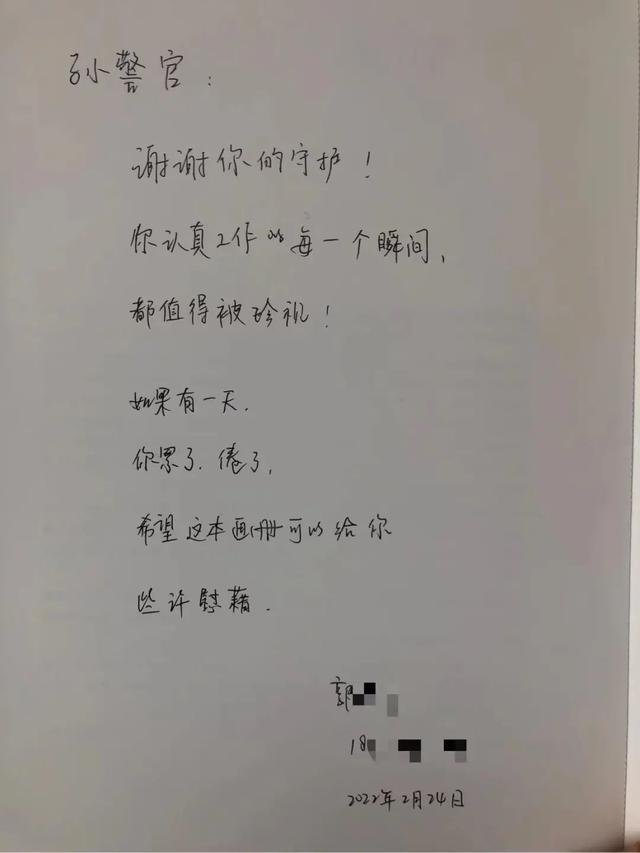 孙警官：
谢谢你的守护！
你认真工作的每一个瞬间，
都值得被珍视！
如果有一天，
你累了．倦了，
希望这本画册可以给你
些许慰藉．
郭
18
2022年2月24日